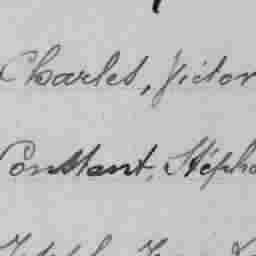 Charles, Victor
Constant, Stépha